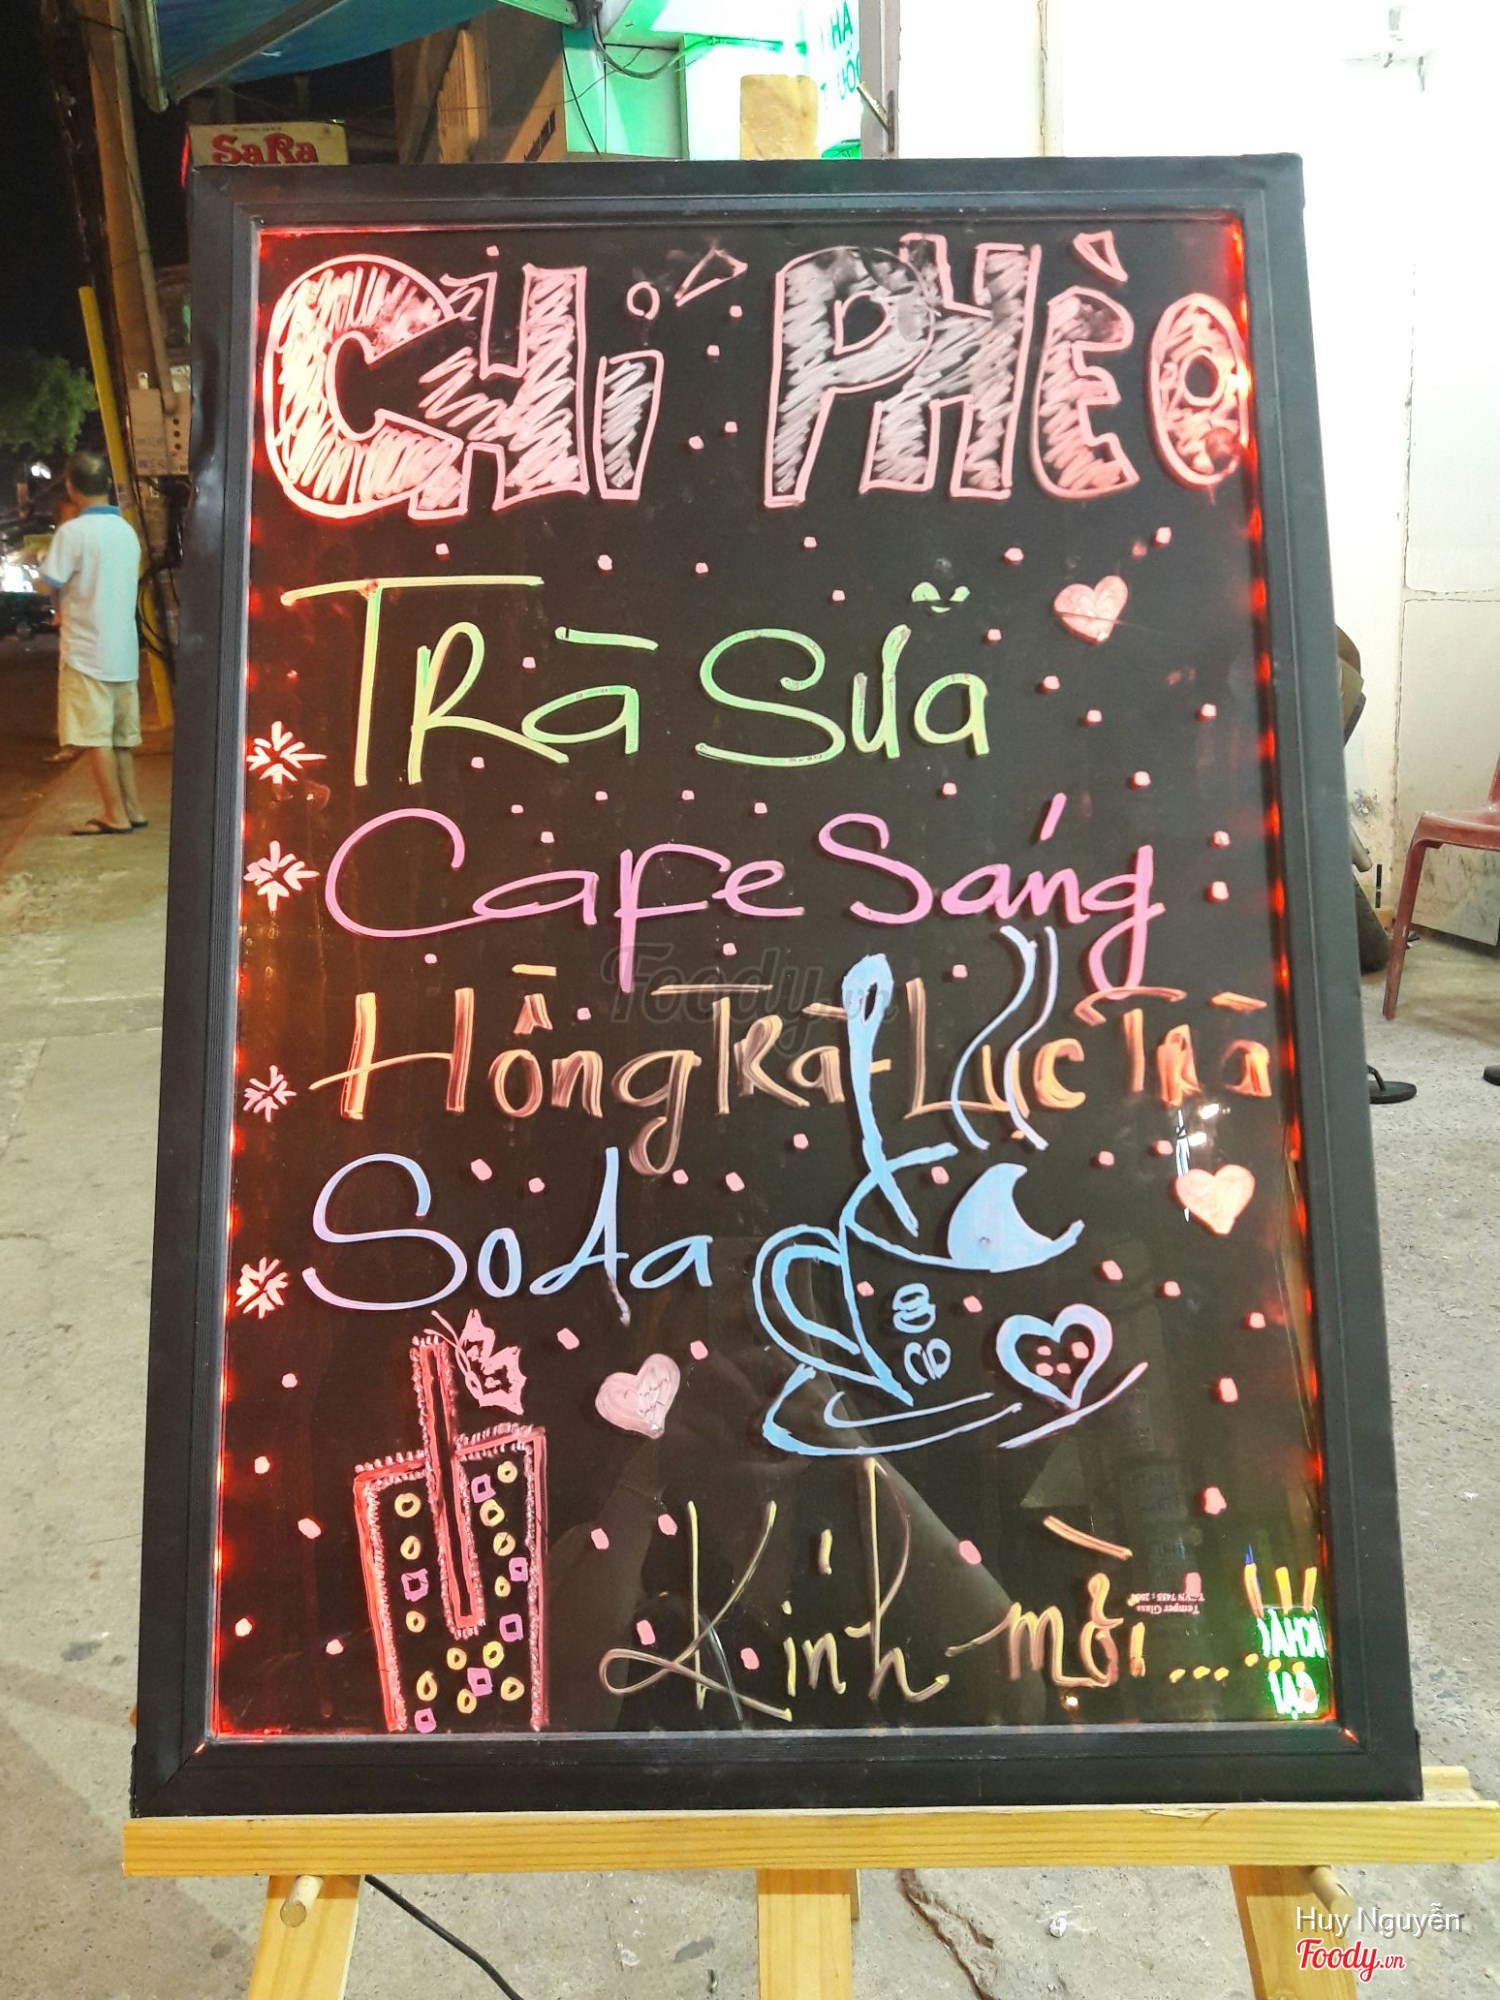 SaRa
CHÍ PHÈO
TRÀ SữA
CAFe Sáng
HỒng TRÀ - Lục TRÀ
Soda
Kính mời....
Temper Glass
Foody.vn
Huy Nguyễn
Foody.vn